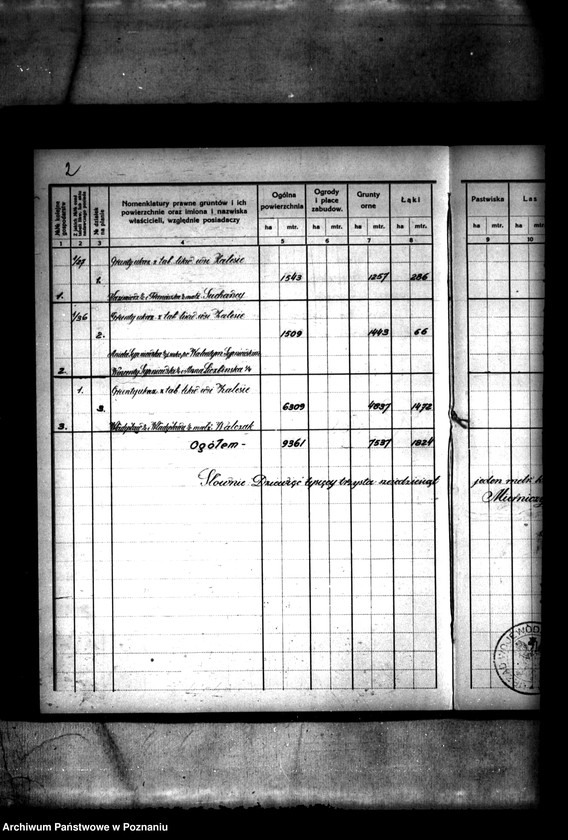 2
№№ kolejne gospodarstw
№ działek na planie
Nomenklatury prawne gruntów i ich powierzchnie oraz imiona i nazwiska właścicieli, względnie posiadaczy
Ogólna powierzchnia
Ogrody i place zabudow.
Grunty orne
Łąki
Pastwiska
Las
ha mtr. ha mtr. ha mtr. ha mtr. ha mtr. ha mtr.
1 2 3 4 5 6 7 8 9 10
1/27 Grunty ukaz. z tab. likw. wsi Zalesie
1. 1543 1257 286
1. Kazimierz ½ i małż. Suchańscy
1/36 Grunty ukaz. z tab. likw. wsi Zalesie
2. 1509 1443 66
2. Wincenty ¼ i Anna ¼
1. Grunty ukaz. z tab. likw. wsi Zalesie
3. 6309 4837 1472
3. Władysław ½ i Władysława ½ małż. Walczak
Ogółem - 9361 7537 1824
Słownie: Dziewięć tysięcy trzysta sześćdziesiąt jeden metr. k
Mierniczy
Archiwum Państwowe w Poznaniu